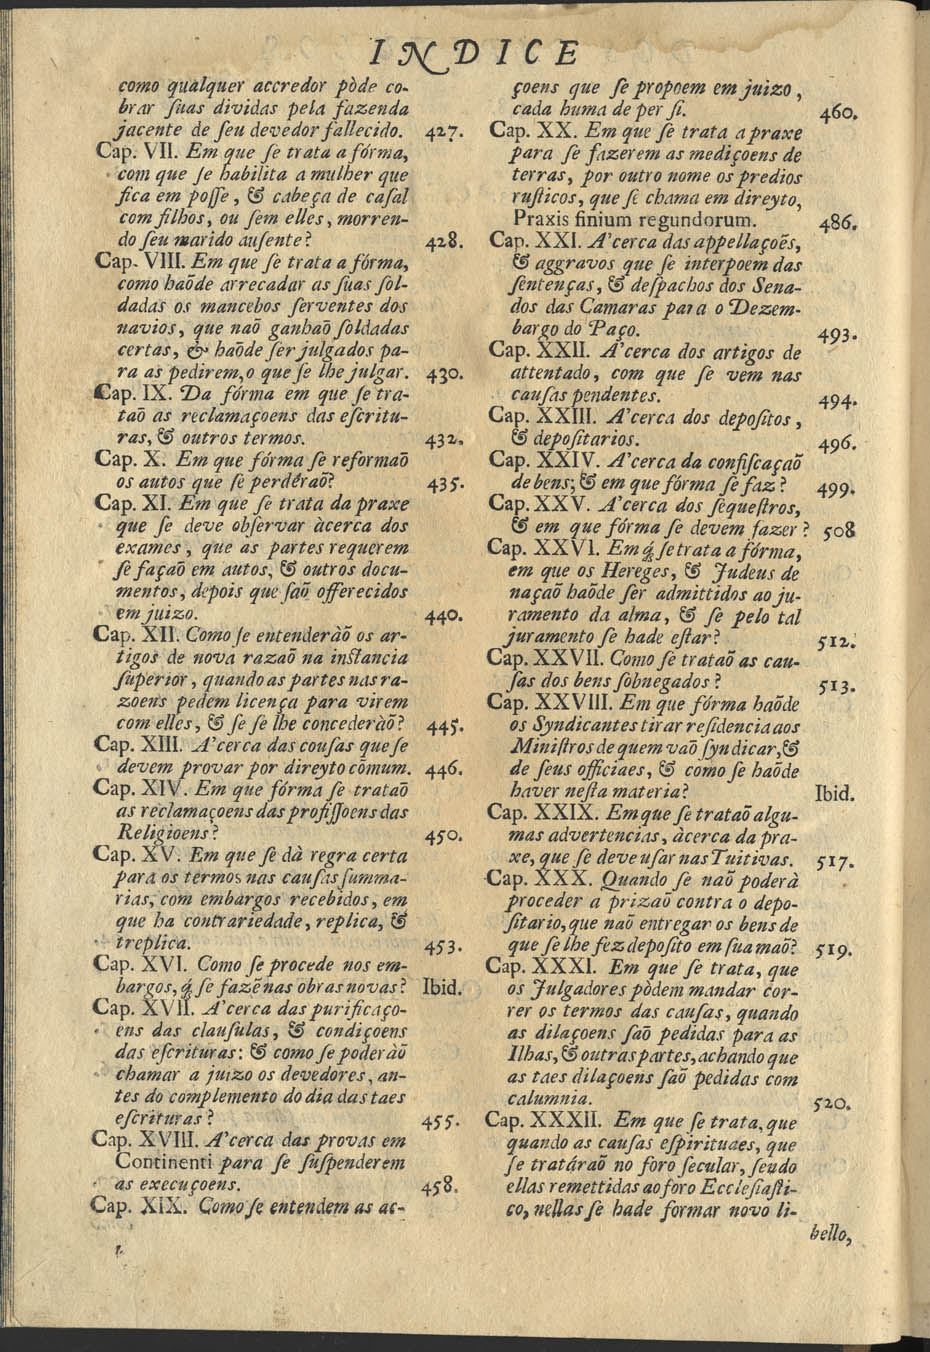 INDICE
como qualquer accredor pòde co-
brar ſuas dividas pela fazenda
jacente de ſeu devedor fallecido. 427.
Cap. VII. Em que ſe trata a fórma,
com que ſe habilita a mulher que
fica em poſſe, & cabeça de caſal
com filhos, ou ſem elles, morren-
do ſeu marido auſente? 428.
Cap. VIII. Em que ſe trata a fórma,
como haõde arrecadar as ſuas ſol-
dadas os mancebos ſerventes dos
navios, que naõ ganhaõ ſoldadas
certas, & haõde ſer julgados pa-
ra as pedirem, o que ſe lhe julgar. 430.
Cap. IX. Da fórma em que ſe tra-
taõ as reclamaçoens das eſcritu-
ras, & outros termos. 432.
Cap. X. Em que fórma ſe reformaõ
os autos que ſe perdéraõ? 435.
Cap. XI. Em que ſe trata da praxe
que ſe deve obſervar àcerca dos
exames, que as partes requerem
ſe façaõ em autos, & outros docu-
mentos, depois que ſaõ offerecidos
em juizo. 440.
Cap. XII. Como ſe entenderàõ os ar-
tigos de nova razaõ na inſtancia
ſuperior, quando as partes nas ra-
zoens pedem licença para virem
com elles, & ſe ſe lhe concederàõ? 445.
Cap. XIII. A'cerca das couſas que ſe
devem provar por direyto cõmum. 446.
Cap. XIV. Em que fórma ſe trataõ
as reclamaçoens das profiſſoens das
Religioens? 450.
Cap. XV. Em que ſe dà regra certa
para os termos nas cauſas ſumma-
rias, com embargos recebidos, em
que ha contrariedade, replica, &
treplica. 453.
Cap. XVI. Como ſe procede nos em-
bargos, q̃ ſe fazẽ nas obras novas? Ibid.
Cap. XVII. A'cerca das purificaço-
ens das clauſulas, & condiçoens
das eſcrituras: & como ſe poderàõ
chamar a juizo os devedores, an-
tes do complemento do dia das taes
eſcrituras? 455.
Cap. XVIII. A'cerca das provas em
Continenti para ſe ſuſpenderem
as execuçoens. 458.
Cap. XIX. Como ſe entendem as ac-
çoens que ſe propoem em juizo,
cada huma de per ſi. 460.
Cap. XX. Em que ſe trata a praxe
para ſe fazerem as mediçoens de
terras, por outro nome os predios
ruſticos, que ſe chama em direyto,
Praxis finium regundorum. 486.
Cap. XXI. A'cerca das appellaçoẽs,
& aggravos que ſe interpoem das
ſentenças, & deſpachos dos Sena-
dos das Camaras para o Dezem-
bargo do Paço. 493.
Cap. XXII. A'cerca dos artigos de
attentado, com que ſe vem nas
cauſas pendentes. 494.
Cap. XXIII. A'cerca dos depoſitos,
& depoſitarios. 496.
Cap. XXIV. A'cerca da confiſcaçaõ
de bens; & em que fórma ſe faz? 499.
Cap. XXV. A'cerca dos ſequeſtros,
& em que fórma ſe devem fazer? 508
Cap. XXVI. Em q̃ ſe trata a fórma,
em que os Hereges, & Judeus de
naçaõ haõde ſer admittidos ao ju-
ramento da alma, & ſe pelo tal
juramento ſe hade eſtar? 512.
Cap. XXVII. Como ſe trataõ as cau-
ſas dos bens ſobnegados? 513.
Cap. XXVIII. Em que fórma haõde
os Syndicantes tirar reſidencia aos
Miniſtros de quem vaõ ſyndicar, &
de ſeus officiaes, & como ſe haõde
haver neſta materia? Ibid.
Cap. XXIX. Em que ſe trataõ algu-
mas advertencias, àcerca da pra-
xe, que ſe deve uſar nas Tuitivas. 517.
Cap. XXX. Quando ſe naõ poderà
proceder a prizaõ contra o depo-
ſitario, que naõ entregar os bens de
que ſe lhe fez depoſito em ſua maõ? 519.
Cap. XXXI. Em que ſe trata, que
os Julgadores pòdem mandar cor-
rer os termos das cauſas, quando
as dilaçoens ſaõ pedidas para as
Ilhas, & outras partes, achando que
as taes dilaçoens ſaõ pedidas com
calumnia. 520.
Cap. XXXII. Em que ſe trata, que
quando as cauſas eſpirituaes, que
ſe tratáraõ no foro ſecular, ſendo
ellas remettidas ao foro Eccleſiaſti-
co, nellas ſe hade formar novo li-
bello,